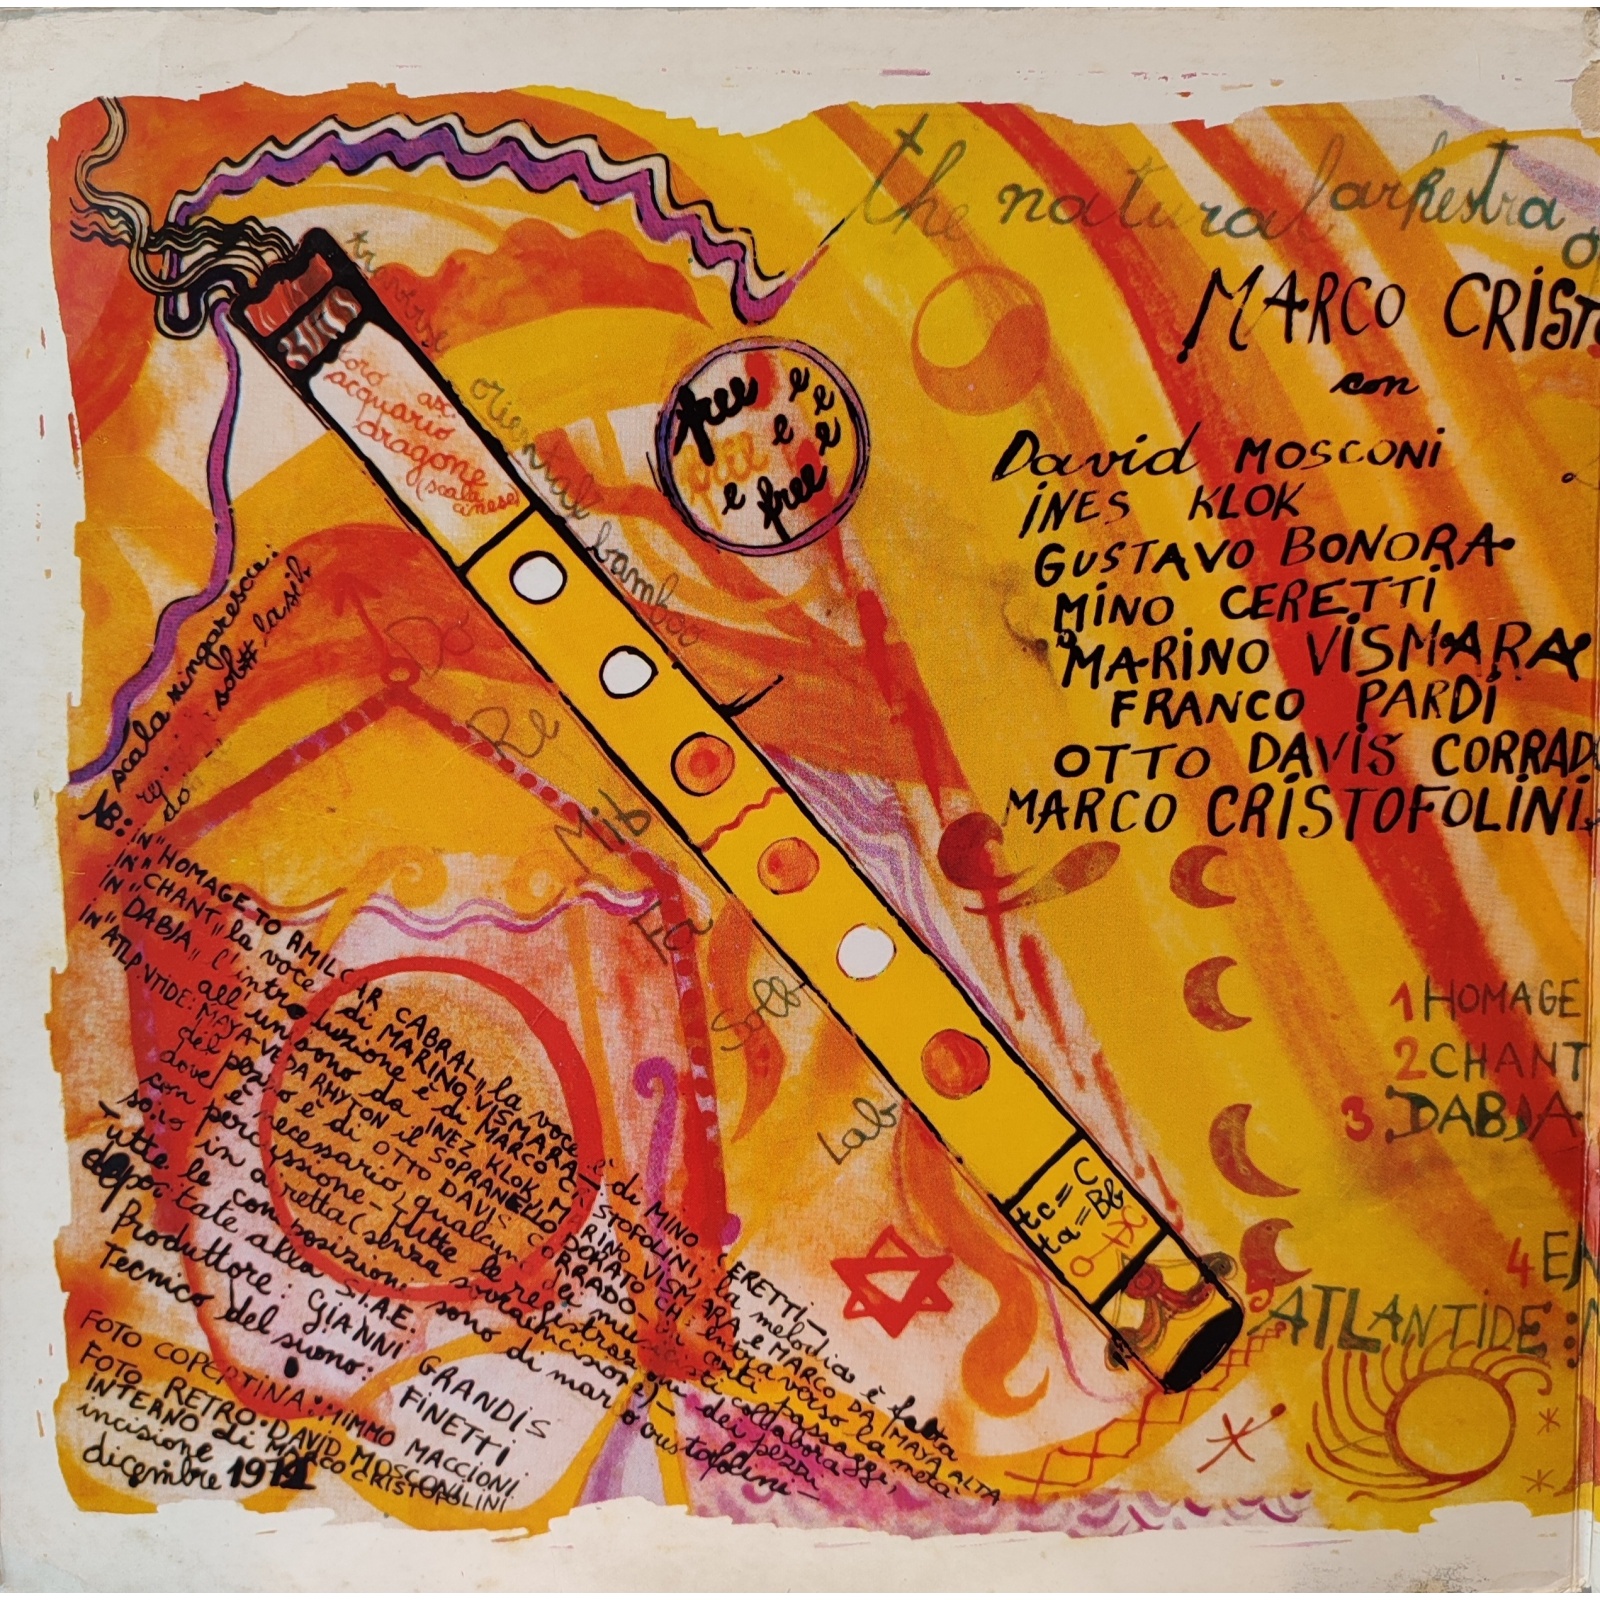 the natural arkestra
MARCO CRISTO
con
David MOSCONI
INES KLOK
GUSTAVO BONORA
MINO CERETTI
MARINO VISMARA
FRANCO PARDI
OTTO DAVIS CORRAD
MARCO CRISTOFOLINI
1 HOMAGE
2 CHANT
3 DABJA
4 EN
ATLANTIDE:
free e e e
free e e
e free e
oriental bamboo
toro
acquario
dragone
(scala
cinese)
Do
Re
Mib
Fa
Solb
Lab
tc = C
ta = Bb
scala zingaresca:
sol# la sib
do
NB: IN "HOMAGE TO AMILCAR CABRAL" la voce è di MINO CERETTI -
IN "CHANT" la voce è di MARINO VISMARA, la melodica è fatta
IN "DABJA" l'introduzione è di MARCO CRISTOFOLINI,
all'unisono da INEZ KLOK, MARINO VISMARA e MARCO
IN "ATLANTIDE: MAYA-VEDA RHYTON il SOPRANELLO
del pezzo è di OTTO DAVIS CORRADO
dove è necessario, qualcuno dei musicisti collabora
con percussione - tutte le registrazioni dei pezzi
sono in diretta (senza sovraincisioni) -
Tutte le composizioni sono di marco cristofolini -
depositate alla S.I.A.E.
Produttore: GIANNI GRANDIS
Tecnico del suono: FINETTI
FOTO COPERTINA: MIMMO MACCIONI
FOTO RETRO: DAVID MOSCONI
INTERNO di MARCO CRISTOFOLINI
incisione
dicembre